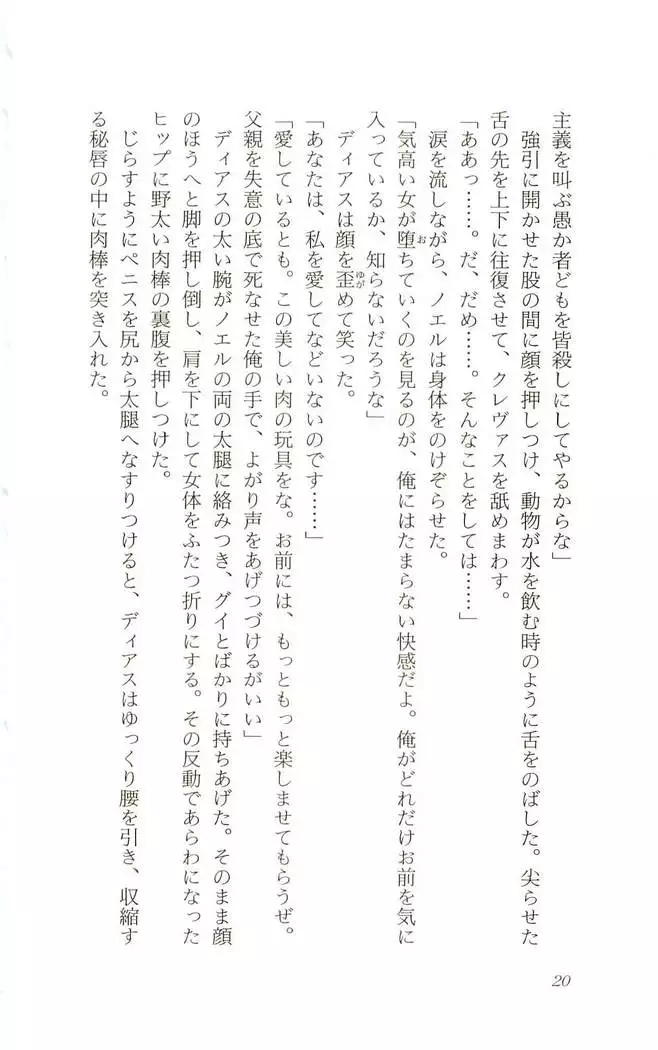 主義を叫ぶ愚か者どもを皆殺しにしてやるからな」
強引に開かせた股の間に顔を押しつけ、動物が水を飲む時のように舌をのばした。尖らせた
舌の先を上下に往復させて、クレヴァスを舐めまわす。
「ああっ……。だ、だめ……。そんなことをしては……」
涙を流しながら、ノエルは身体をのけぞらせた。
「気高い女が堕おちていくのを見るのが、俺にはたまらない快感だよ。俺がどれだけお前を気に
入っているか、知らないだろうな」
ディアスは顔を歪ゆがめて笑った。
「あなたは、私を愛してなどいないのです……」
「愛しているとも。この美しい肉の玩具をな。お前には、もっともっと楽しませてもらうぜ。
父親を失意の底で死なせた俺の手で、よがり声をあげつづけるがいい」
ディアスの太い腕がノエルの両の太腿に絡みつき、グイとばかりに持ちあげた。そのまま顔
のほうへと脚を押し倒し、肩を下にして女体をふたつ折りにする。その反動であらわになった
ヒップに野太い肉棒の裏腹を押しつけた。
じらすようにペニスを尻から太腿へなすりつけると、ディアスはゆっくり腰を引き、収縮す
る秘唇の中に肉棒を突き入れた。
20